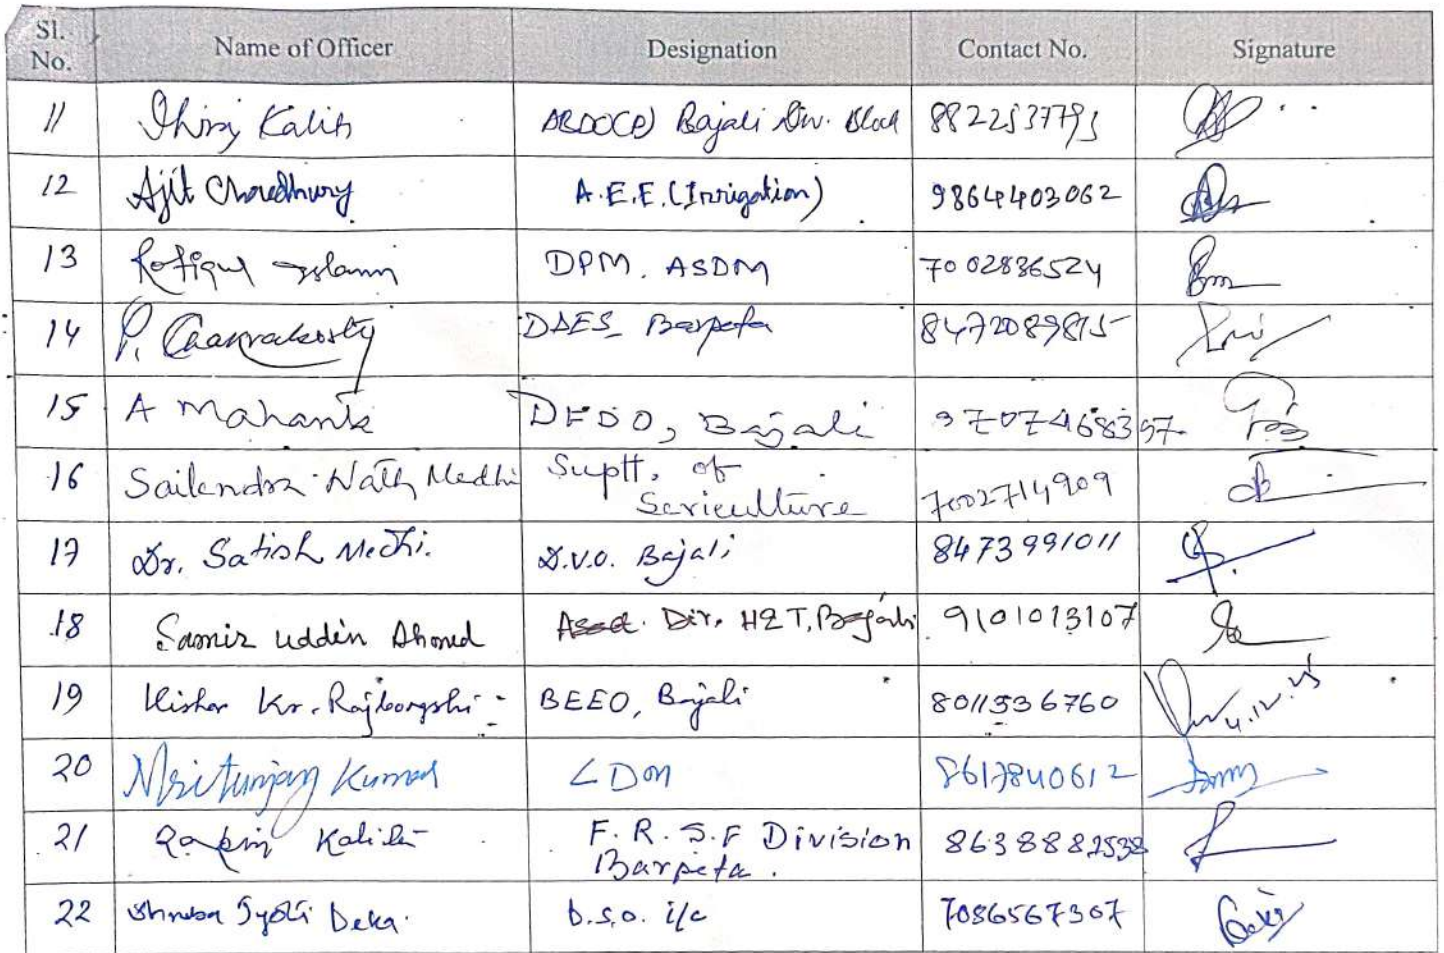 Sl. No. Name of Officer Designation Contact No. Signature
11 Dhiraj Kalita ABDO(P) Bajali Dev. Block 8822537793
12 Ajit Choudhury A.E.E. (Irrigation) 9864403062
13 Rofiqul Islam DPM, ASDM 7002836524
14 P. Chakraborty DDES Barpeta 8472089815
15 A Mahanta DFDO, Bajali 9707468397
16 Sailendra Nath Medhi Suptt. of Sericulture 7002714909
17 Dr. Satish Medhi. D.V.O. Bajali 8473991011
18 Samir uddin Ahmed Asstt. Dir. H&T, Bajali 9101013107
19 Kishor Kr. Rajbongshi BEEO, Bajali 8011536760 4.12.25
20 Mritunjay Kumar LDM 8617840612
21 Kalita F.R.S.F Division Barpeta. 8638882538
22 Jyoti Deka. D.S.O. i/c 7086567307